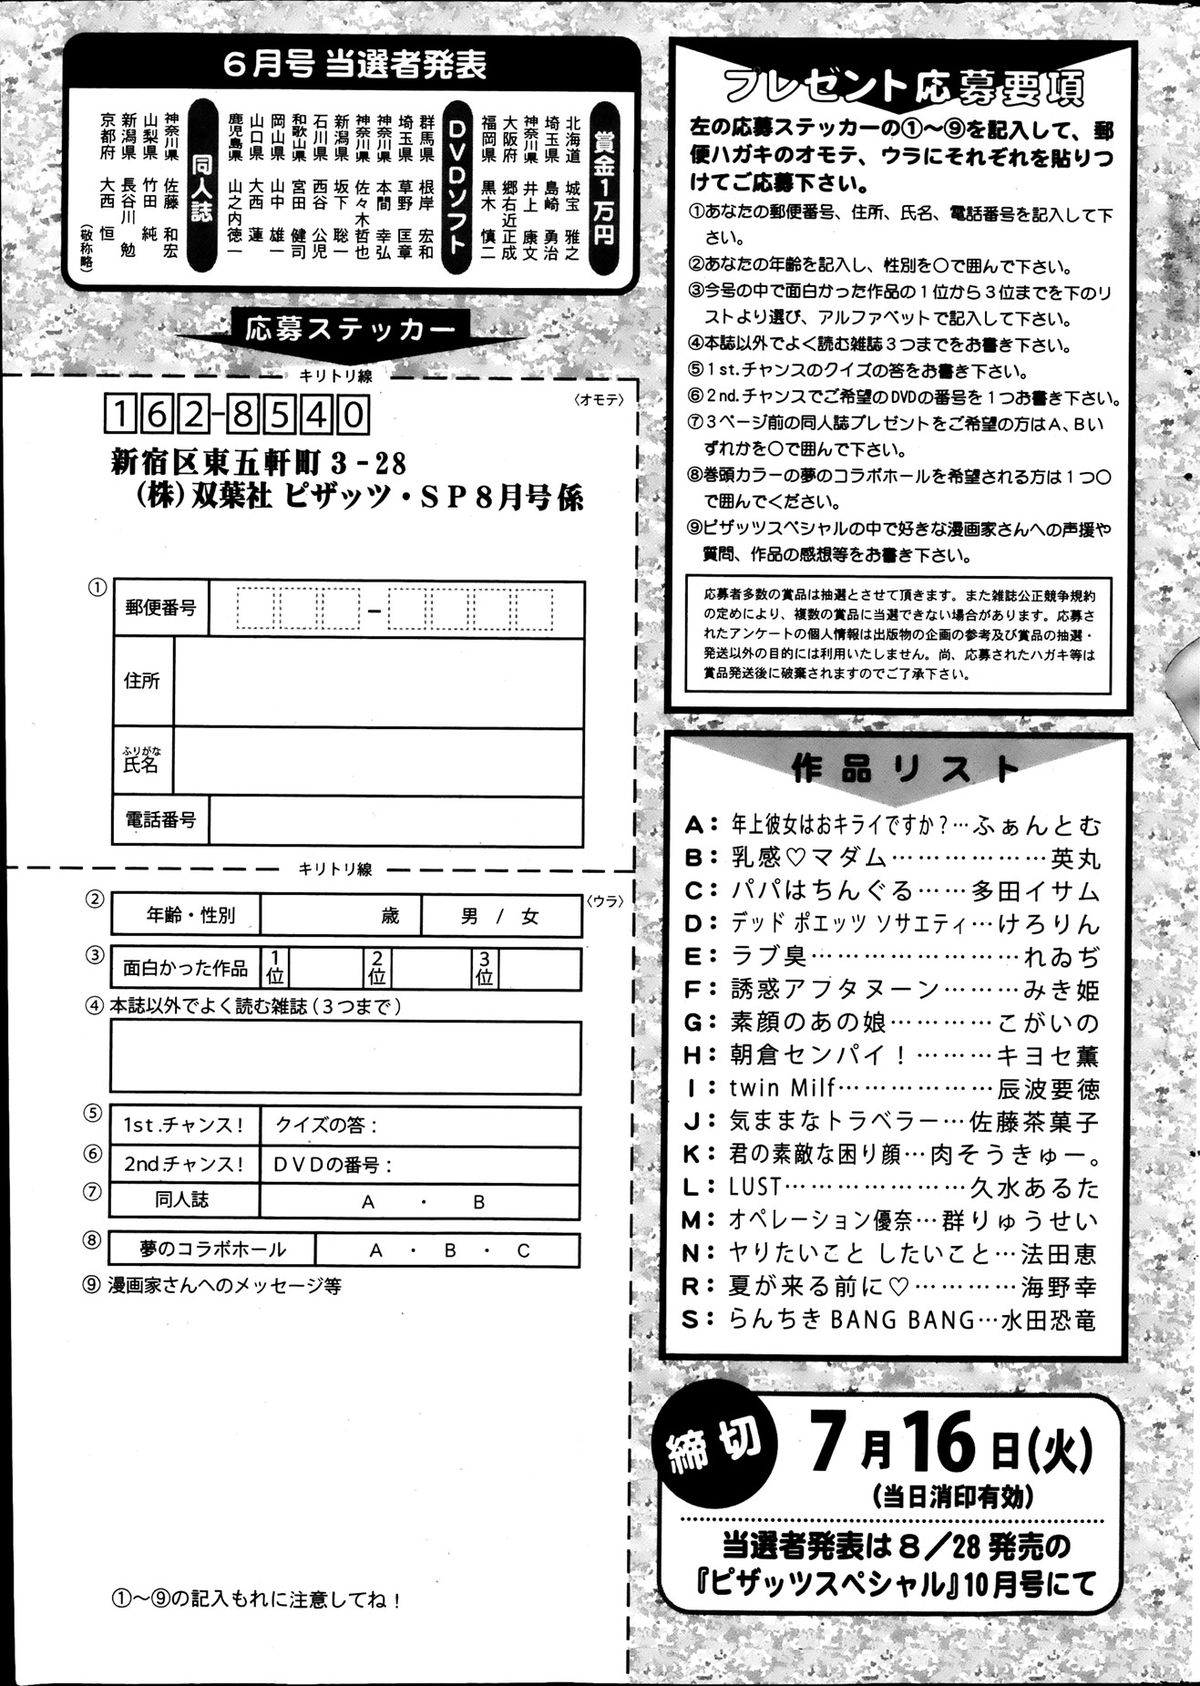 6月号 当選者発表
賞金1万円
北海道 城宝 雅之
埼玉県 島崎 勇治
神奈川県 井上 康文
大阪府 郷右近正成
福岡県 黒木 慎二
DVDソフト
群馬県 根岸 宏和
埼玉県 草野 匡章
神奈川県 本間 幸弘
神奈川県 佐々木哲也
新潟県 坂下 聡一
石川県 西谷 公児
和歌山県 宮田 健司
岡山県 山中 雄一
山口県 大西 蓮
鹿児島県 山之内徳一
同人誌
神奈川県 佐藤 和宏
山梨県 竹田 純
新潟県 長谷川 勉
京都府 大西 恒
(敬称略)
応募ステッカー
キリトリ線
162-8540
〈オモテ〉
新宿区東五軒町3-28
(株)双葉社 ピザッツ・SP8月号係
①
郵便番号
住所
ふりがな
氏名
電話番号
キリトリ線
②
年齢・性別 歳 男 / 女
〈ウラ〉
③
面白かった作品 1位 2位 3位
④本誌以外でよく読む雑誌(3つまで)
⑤
1st.チャンス! クイズの答:
⑥
2nd.チャンス! DVDの番号:
⑦
同人誌 A ・ B
⑧
夢のコラボホール A ・ B ・ C
⑨漫画家さんへのメッセージ等
①〜⑨の記入もれに注意してね!
プレゼント応募要項
左の応募ステッカーの①〜⑨を記入して、郵
便ハガキのオモテ、ウラにそれぞれを貼りつ
けてご応募下さい。
①あなたの郵便番号、住所、氏名、電話番号を記入して下
さい。
②あなたの年齢を記入し、性別を○で囲んで下さい。
③今号の中で面白かった作品の1位から3位までを下のリ
ストより選び、アルファベットで記入して下さい。
④本誌以外でよく読む雑誌3つまでをお書き下さい。
⑤1st.チャンスのクイズの答をお書き下さい。
⑥2nd.チャンスでご希望のDVDの番号を1つお書き下さい。
⑦3ページ前の同人誌プレゼントをご希望の方はA、Bい
ずれかを○で囲んで下さい。
⑧巻頭カラーの夢のコラボホールを希望される方は1つ○
で囲んでください。
⑨ピザッツスペシャルの中で好きな漫画家さんへの声援や
質問、作品の感想等をお書き下さい。
応募者多数の賞品は抽選とさせて頂きます。また雑誌公正競争規約
の定めにより、複数の賞品に当選できない場合があります。応募さ
れたアンケートの個人情報は出版物の企画の参考及び賞品の抽選・
発送以外の目的には利用いたしません。尚、応募されたハガキ等は
賞品発送後に破棄されますのでご了承下さい。
作品リスト
A:年上彼女はおキライですか?…ふぁんとむ
B:乳感♡マダム………………英丸
C:パパはちんぐる……多田イサム
D:デッド ポエッツ ソサエティ…けろりん
E:ラブ臭………………………れゐぢ
F:誘惑アフタヌーン………みき姫
G:素顔のあの娘…………こがいの
H:朝倉センパイ!………キヨセ薫
I:twin Milf………………辰波要徳
J:気ままなトラベラー…佐藤茶菓子
K:君の素敵な困り顔…肉そうきゅー。
L:LUST…………………久水あるた
M:オペレーション優奈…群りゅうせい
N:ヤりたいこと したいこと…法田恵
R:夏が来る前に♡…………海野幸
S:らんちきBANG BANG…水田恐竜
締切
7月16日(火)
(当日消印有効)
当選者発表は8/28発売の
『ピザッツスペシャル』10月号にて